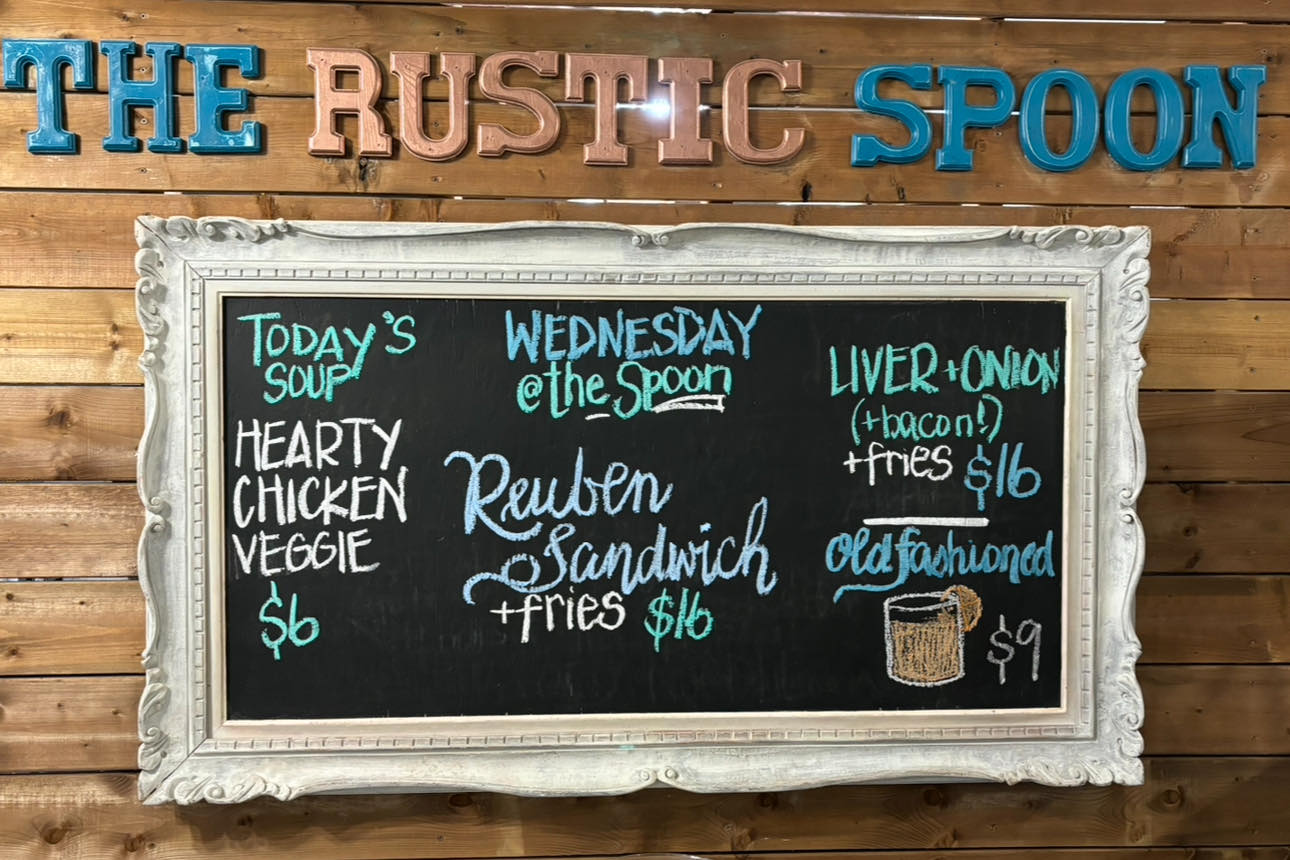 THE RUSTIC SPOON
TODAY'S
SOUP
HEARTY
CHICKEN
VEGGIE
$6
WEDNESDAY
@the Spoon
Reuben
Sandwich
+fries $16
LIVER + ONION
(+bacon!)
+fries $16
Old fashioned
$9